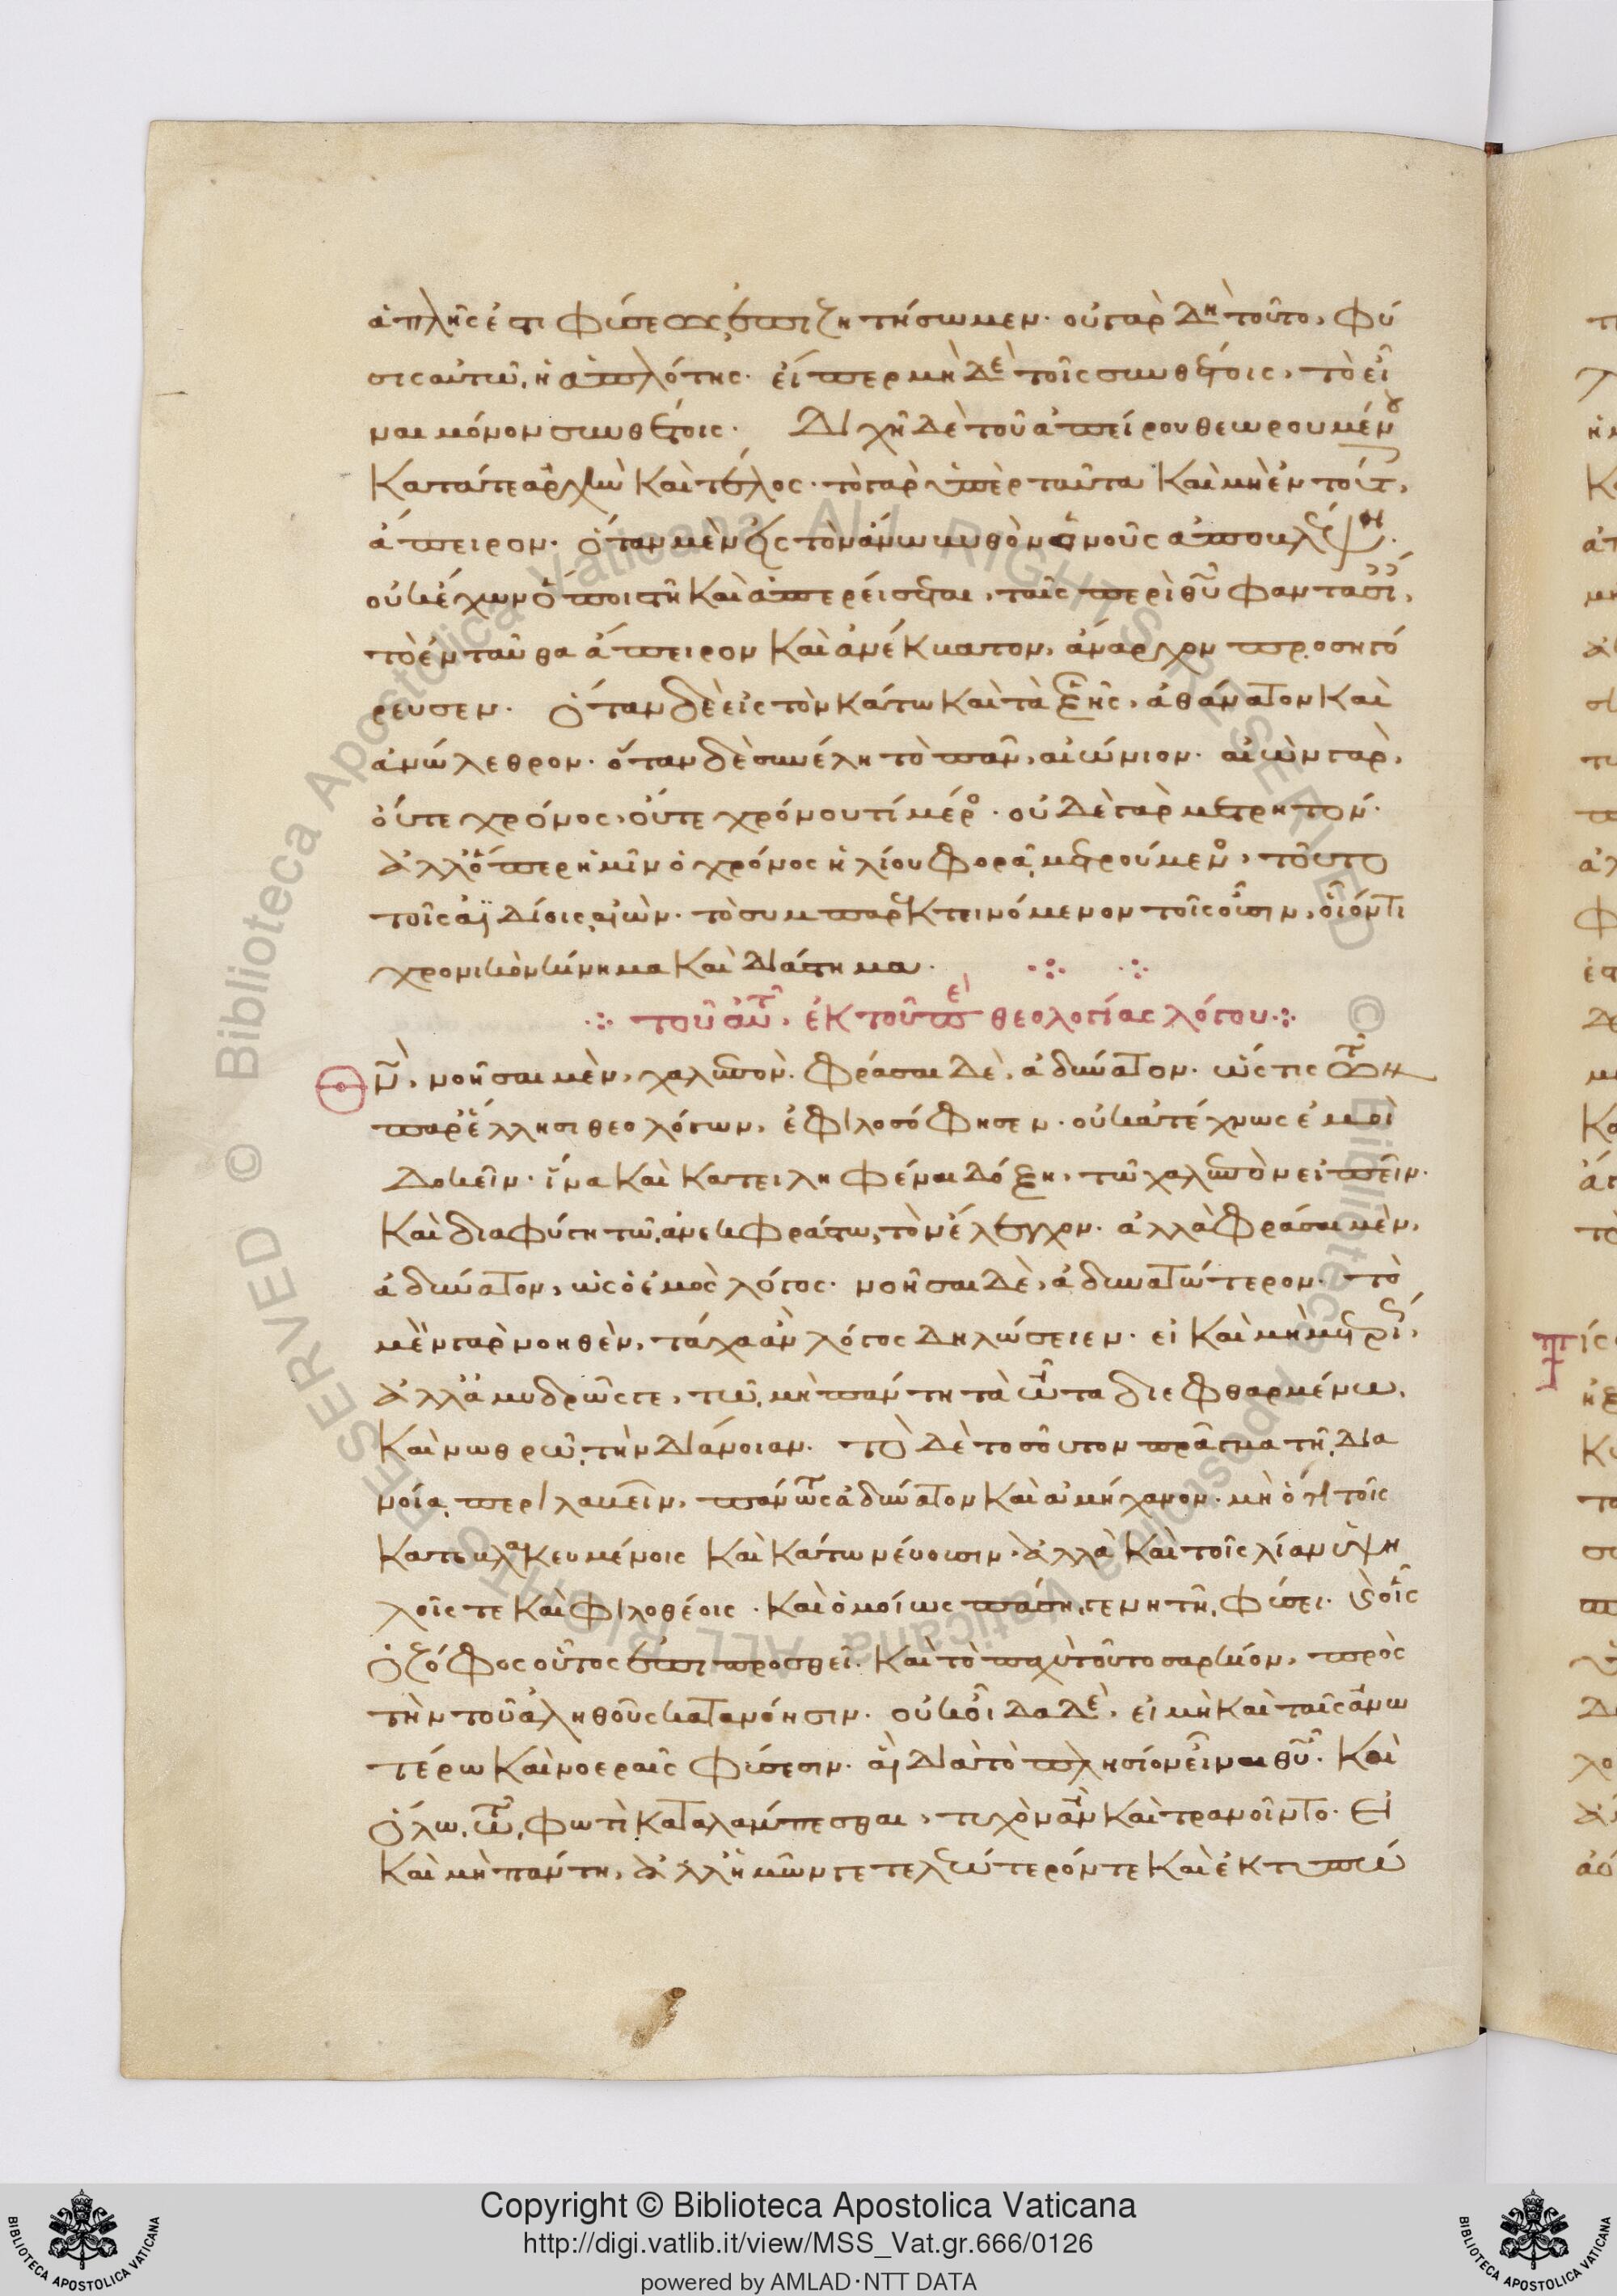 ἁπλῆς ἐστι φύσεως ἐπιζητήσωμεν· οὐ γὰρ δὴ τοῦτο, φύ
σις αὐτῷ, ἡ ἁπλότης· εἴπερ μὴ δὲ τοῖς συνθέτοις, τὸ εἶ
ναι μόνον συνθέτοις· Διχῆ δὲ τοῦ ἀπείρου θεωρουμένου
κατά τε ἀρχὴν καὶ τέλος· τὸ γὰρ ὑπὲρ ταῦτα καὶ μὴ ἐν τούτ,
ἄπειρον· ὅταν μὲν εἰς τὸν ἄνω βυθὸν ὁ νοῦς ἀποβλέψῃ·
οὐκ ἔχων ὅποι στῇ καὶ ἀπερείσηται, ταῖς περὶ θῦ φαντασί,
τὸ ἐνταῦθα ἄπειρον καὶ ἀνέκβατον, ἄναρχον προσηγό
ρευσεν· ὅταν δὲ εἰς τὸν κάτω καὶ τὰ ἑξῆς, ἀθάνατον καὶ
ἀνώλεθρον· ὅταν δὲ συνέλη τὸ πᾶν, αἰώνιον· αἰὼν γὰρ,
οὔτε χρόνος, οὔτε χρόνου τί μέρος· οὐδὲ γὰρ μετρητόν·
ἀλλ' ὅπερ ἡμῖν ὁ χρόνος ἡλίου φορᾷ μετρούμενος, τοῦτο
τοῖς ἀϊδίοις αἰὼν· τὸ συμπαρεκτεινόμενον τοῖς οὖσιν, οἷόν τι
χρονικὸν κίνημα καὶ διάστημα·
τοῦ αὐτ, ἐκ τοῦ περὶ θεολογίας λόγου
Θν̅, νοῆσαι μὲν, χαλεπὸν· φράσαι δὲ, ἀδύνατον· ὥς τις τῶν
παρ' ἕλλησι θεολόγων, ἐφιλοσόφησεν· οὐκ ἀτέχνως ἐμοὶ
δοκεῖν· ἵνα καὶ κατειληφέναι δόξῃ, τῷ χαλεπὸν εἰπεῖν·
καὶ διαφύγῃ τῷ ἀνεκφράστω, τὸν ἔλεγχον· ἀλλὰ φράσαι μὲν,
ἀδύνατον, ὡς ὁ ἐμὸς λόγος· νοῆσαι δὲ, ἀδυνατώτερον· τὸ
μὲν γὰρ νοηθὲν, τάχα ἂν λόγος δηλώσειεν· εἰ καὶ μὴ μετρί,
ἀλλ' ἀμυδρῶς γε, τῷ μὴ πάντη τὰ ὦτα διεφθαρμένω,
καὶ νωθρῷ τὴν διάνοιαν· τὸ δὲ τοσοῦτον πρᾶγμα τῇ δια
νοίᾳ περιλαβεῖν, πάντως ἀδύνατον καὶ ἀμήχανον· μὴ ὅτι τοῖς
καταβλακευμένοις καὶ κάτω νεύουσιν, ἀλλὰ καὶ τοῖς λίαν ὑψη
λοῖς τε καὶ φιλοθέοις· καὶ ὁμοίως πάσῃ γενητῇ φύσει· καὶ οἷς
ὁ ζόφος οὗτος ἐπιπροσθεῖ· καὶ τὸ παχὺ τοῦτο σαρκίον, πρὸς
τὴν τοῦ ἀληθοῦς κατανόησιν· οὐκ οἶδα δὲ, εἰ μὴ καὶ ταῖς ἀνω
τέρω καὶ νοεραῖς φύσεσιν· αἳ διὰ τὸ πλησίον εἶναι θῦ· καὶ
ὅλω τῷ φωτὶ καταλάμπεσθαι, τυχὸν ἂν καὶ τρανοῖντο· εἰ
καὶ μὴ πάντη, ἀλλ' ἡμῶν γε τελεώτερόν τε καὶ ἐκτυπώ
Copyright © Biblioteca Apostolica Vaticana
http://digi.vatlib.it/view/MSS_Vat.gr.666/0126
powered by AMLAD·NTT DATA